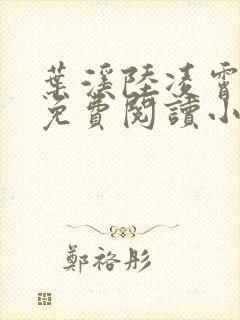 葉溪陸凌霄
免費閱讀小
鄭裕彤